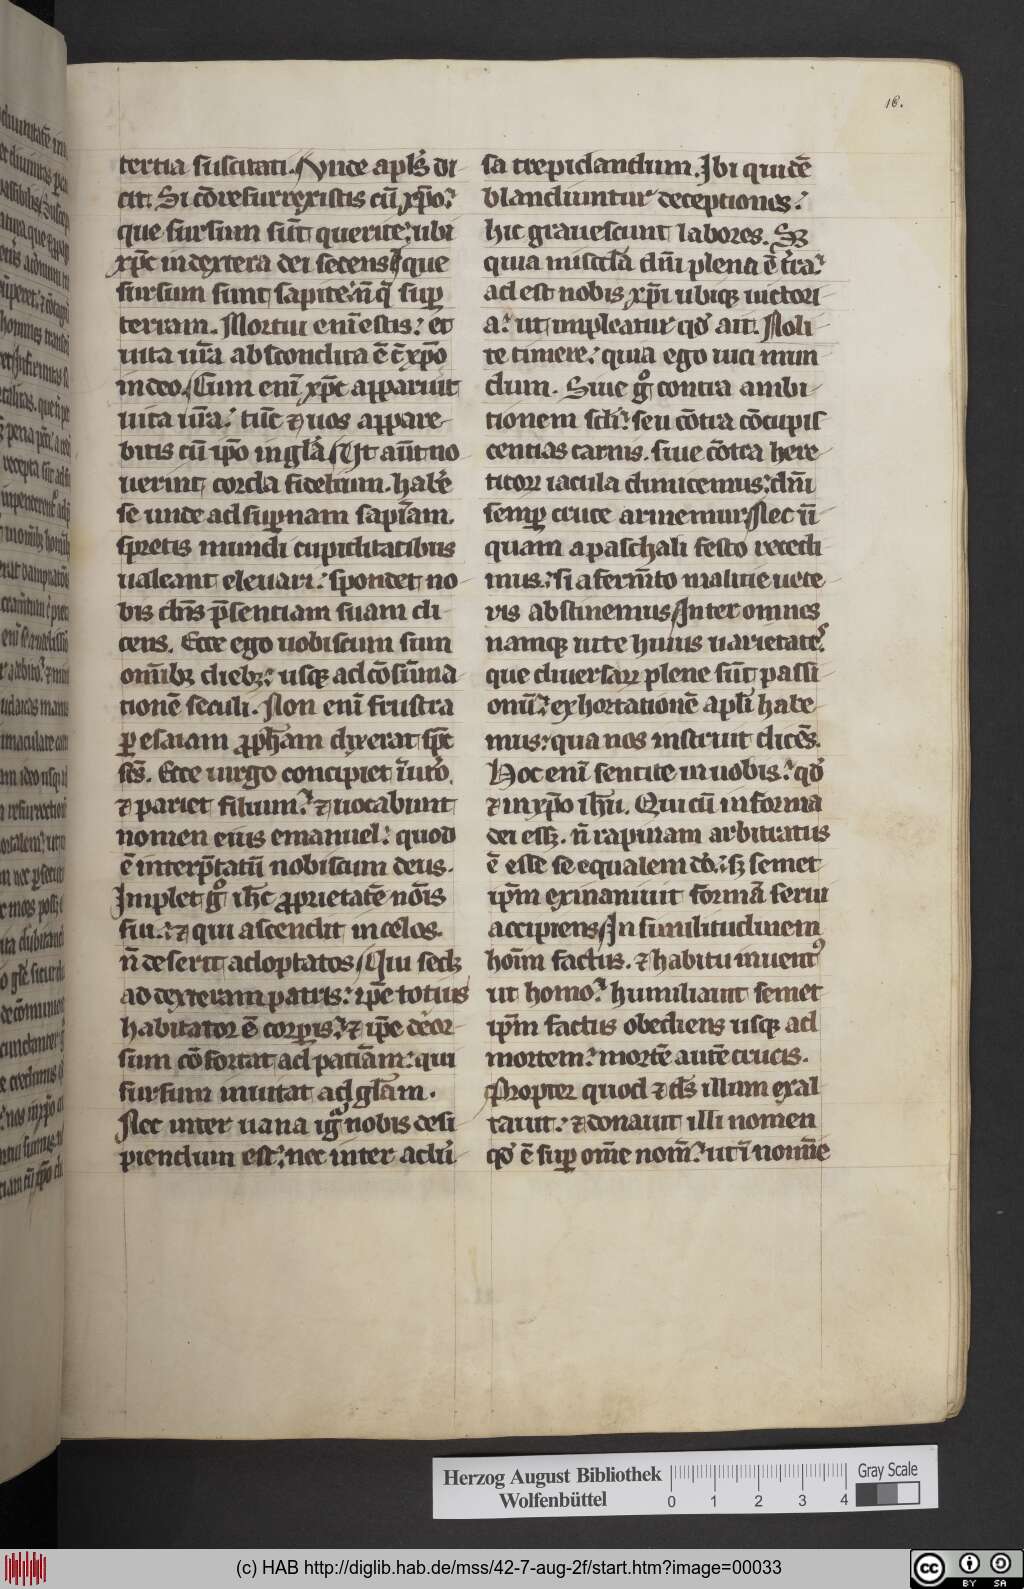 18.
tertia suscitati. Vnde apl's di
cit. Si cōresurrexistis cū xp̄o:
que sursum sūt querite: ubi
xp̄c in dextera dei sedens. que
sursum sunt sapite: n̄ q̄ sup̱
terram. Mortui enī estis: et
uita ur̄a abscondita ē c̄ xp̄o
in deo. Cum enī xp̄c apparuit
uita ur̄a: tūc ⁊ uos appare
bitis cū ip̄o in glā. Vt aūt no
uerint corda fidelium. habe͛
se unde ad sup̱nam sapīam.
spretis mundi cupiditatibus
ualeant eleuari: spondet no
bis dn̄s p̄sentiam suam di
cens. Ecce ego uobiscum sum
omībꝫ diebꝫ: usqꝫ ad cōsūma
tionē seculi. Non enī frustra
ꝑ esaiam ꝓph̄am dixerat sp̄c
sc̄s. Ecce uirgo concipiet ī ut͛o.
⁊ pariet filium: ⁊ uocabunt
nomen eius emanuel: quod
ē interp̄tatū nobiscum deus.
Implet gͦ ih̄c ꝓprietatē nōis
sui: ⁊ qui ascendit in celos.
n̄ deserit adoptatos. Qui sedꝫ
ad dexteram patris: ip̄e totius
habitator ē corꝑis: ⁊ ip̄e deor
sum cōfortat ad patīam: qui
sursum inuitat ad glām.
Nec inter uana igͣ nobis desi
piendum est: nec inter adu͛
sa trepidandum. Ibi quidē
blandiuntur deceptiones:
hic grauescunt labores. Sꝫ
quia misc̄dā dn̄i plena ē t͛ra:
adest nobis xp̄i ubiqꝫ uictori
a: ut impleatur qd̄ ait. Noli
te timere: quia ego uici mun
dum. Siue gͦ contra ambi
tionem sc̄li: seu cōtra cōcupis
centias carnis. siue cōtra here
ticoꝝ iacula dimicemus: dn̄i
semꝑ cruce armemur. Nec ū
quam a paschali festo recedi
mus: si a fermn̄to malitie uete
ris abstinemus. Inter omnes
namqꝫ uite huius uarietates:
que diuersaꝝ plene sūt passi
onū: exhortationē apl'i habe
mus: qua nos instruit dicēs.
Hoc enī sentite in uobis: qd̄
⁊ in xp̄o ih̄u. Qui cū in forma
dei esſꝫ. n̄ rapinam arbitratus
ē esse se equalem dō: sꝫ semet
ip̄m exinaniuit formā serui
accipiens. In similitudinem
hoīm factus. ⁊ habitu inuentꝰ
ut homo: humiliauit semet
ip̄m factus obediens usqꝫ ad
mortem: mortē autē crucis.
Propter quod ⁊ ds̄ illum exal
tauit: ⁊ donauit illi nomen
qd̄ ē suꝑ om̄e nom̄: ut ī nom̄ie
Herzog August Bibliothek
Wolfenbüttel
0 1 2 3 4
Gray Scale
(c) HAB http://diglib.hab.de/mss/42-7-aug-2f/start.htm?image=00033
cc BY SA